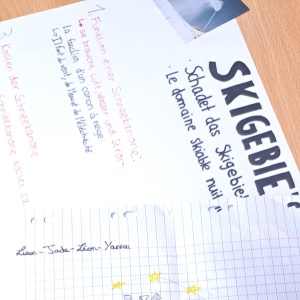 SKIGEBIE
· Schadet das Skigebie
· Le domaine skiable nuit
1. Funktion einer Schneekanone:
↳ sie brauche Luft, Wasser und Strom
La fonction d'un canon à neige
↳ Il faut du vent, de l'eau et de l'électricité
2. Kosten der Schneekanone
kostet ca
- Jada - Léon - Hanna